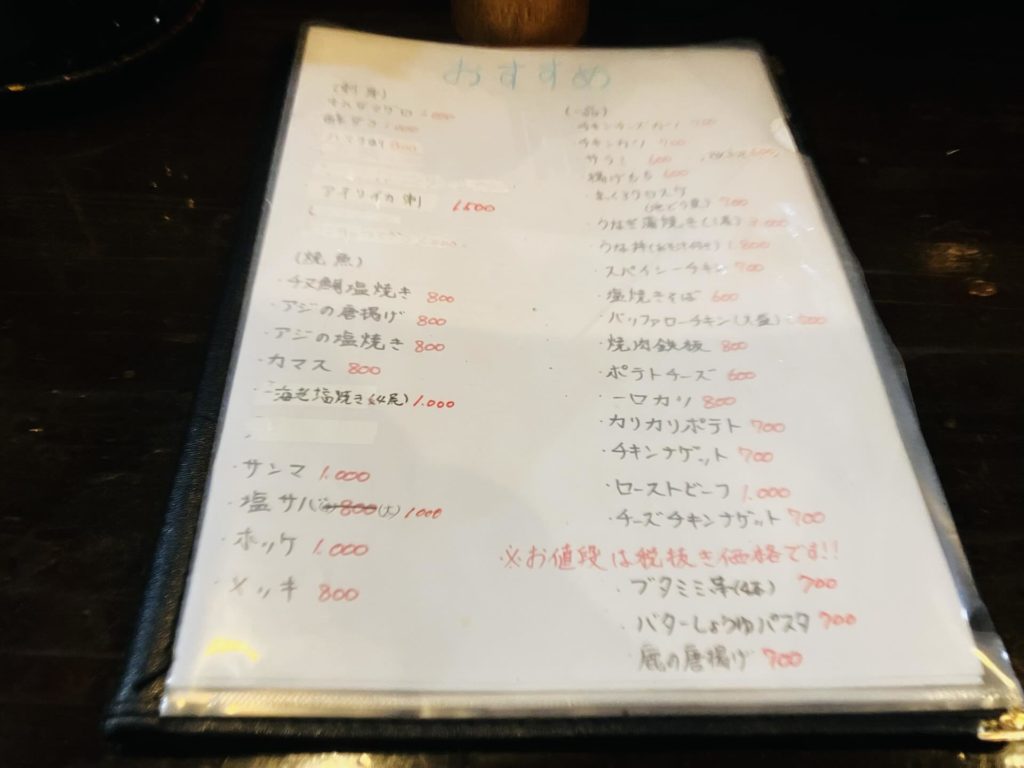 おすすめ
(刺身)
アオリイカ刺 1.500
(焼魚)
・チヌ鯛塩焼き 800
・アジの唐揚げ 800
・アジの塩焼き 800
・カマス 800
・海老塩焼き(4尾) 1.000
・サンマ 1.000
・塩サバ (大) 1000
・ホッケ 1.000
・メッキ 800
(一品)
・チキンチーズカツ 700
・チキンカツ 700
・揚げもち 600
・うなぎ蒲焼き
・うな丼 1.800
・スパイシーチキン 700
・塩焼きそば 600
・バッファローチキン(大盛)
・焼肉鉄板 800
・ポテトチーズ 600
・一口カツ 800
・カリカリポテト 700
・チキンナゲット 700
・ローストビーフ 1.000
・チーズチキンナゲット 700
※お値段は税抜き価格です!!
・ブタミミ串(4本) 700
・バターしょうゆパスタ 700
・の唐揚げ 700